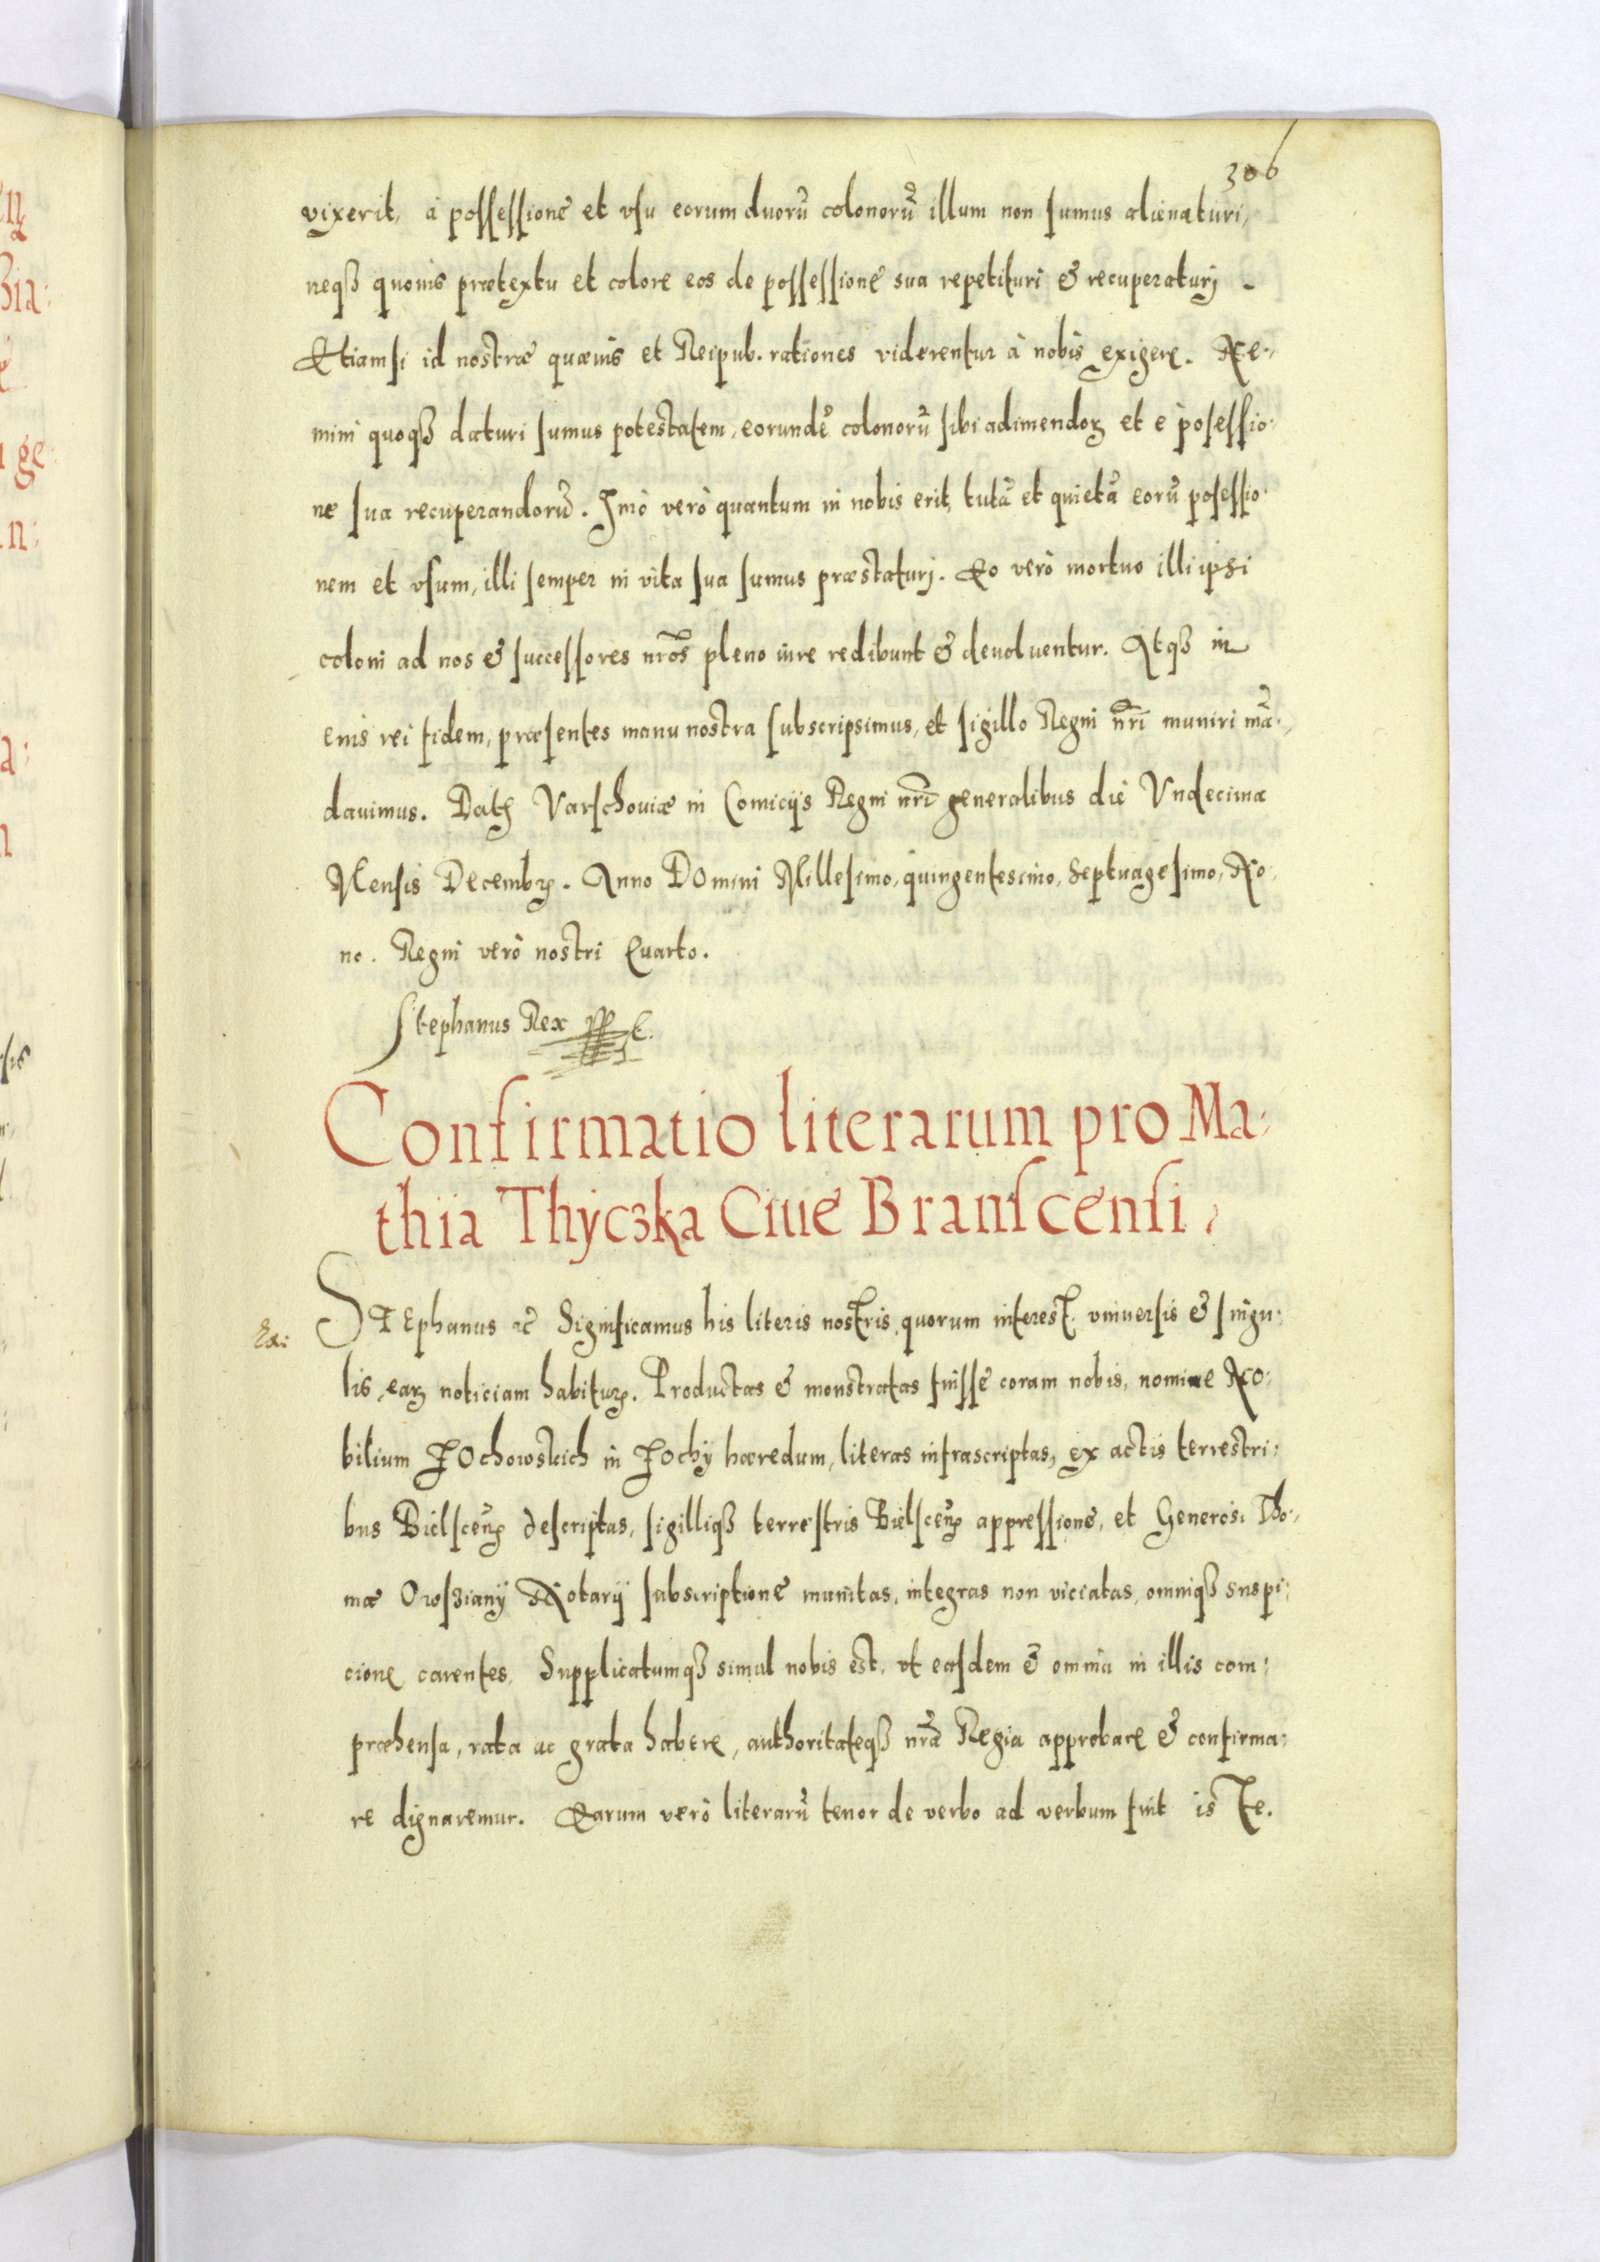 306
vixerit, à possessione et vsu eorum duorũ colonorũ illum non sumus alienaturi,
neqꝫ quouis prætextu et colore eos de possessione sua repetituri & recuperaturj.
Etiamsi id nostræ quævis et Reipub. rationes viderentur à nobis exigere. Ne-
mini quoqꝫ daturi sumus potestatem, eorundẽ colonorũ sibi adimendoꝝ et è posessio-
ne sua recuperandorũ. Imò verò quantum in nobis erit, tutã et quietã eorũ posessio-
nem et vsum, illi semper in vita sua sumus præstaturj. Eo verò mortuo illi ipsi
coloni ad nos & successores nr̃os pleno iure redibunt & deuoluentur. Atqꝫ in
euis rei fidem, præsentes manu nostra subscripsimus, et sigillo Regni nr̃i muniri mã-
dauimus. Datꝭ Varschouiæ in Comicijs Regni nr̃i generalibus die Vndecima
Mensis Decembꝝ. Anno Domini Millesimo, quingentesimo, Septuagesimo, No-
no. Regni verò nostri Quarto.
Stephanus Rex
Confirmatio literarum pro Ma-
thia Thyczka Ciue Branscensi,
STEphanus ꝛc̃ Significamus his literis nostris quorum interest. vniuersis & singu-
lis, eaꝝ noticiam habituꝝ. Productas & monstratas fuisse coram nobis, nomine No-
bilium Zochowskich in Zochÿ hæredum, literas infrascriptas, ex actis terrestri-
bus Bielsceñ descriptas, sigilliqꝫ terrestris Bielsceñ appressione, et Generosi Tho-
mæ Owszianÿ Notarij subscriptione munitas, integras non viciatas, omniqꝫ suspi-
cione carentes. Supplicatumqꝫ simul nobis est, vt easdem & omnia in illis com-
præhensa, rata ac grata habere, authoritateqꝫ nr̃a Regia approbare & confirma-
re dignaremur. Earum verò literarũ tenor de verbo ad verbum fuit is Te.